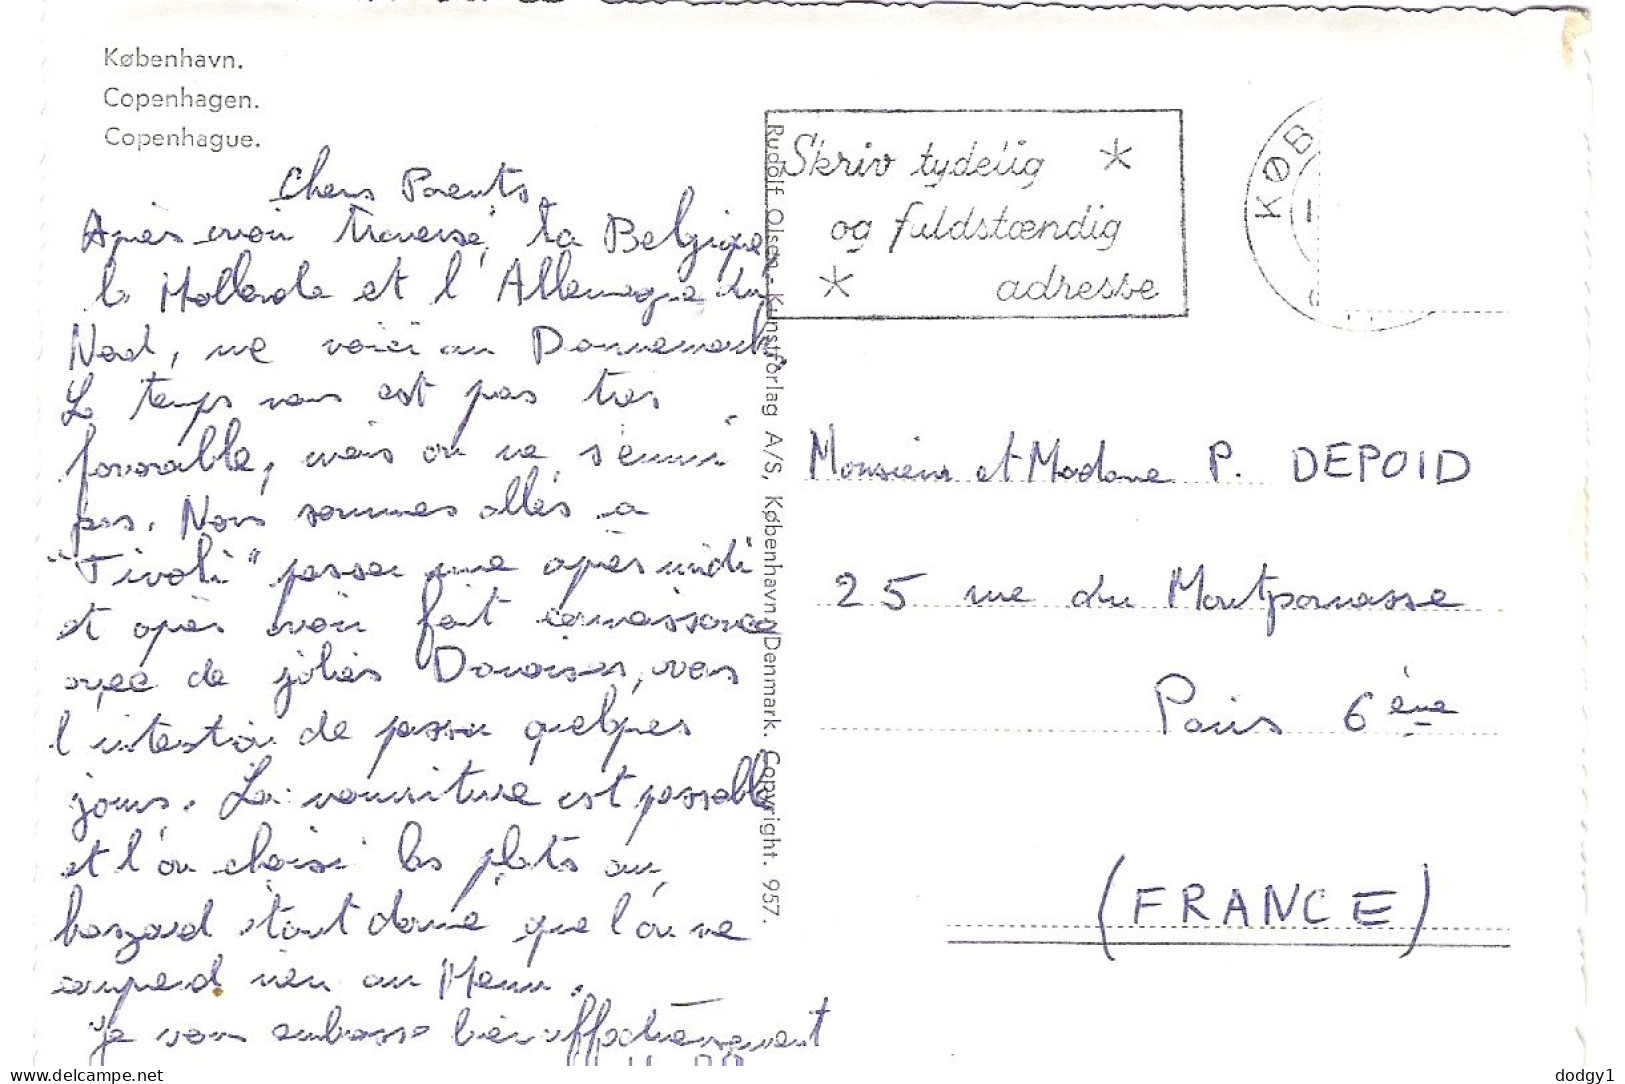 København.
Copenhagen.
Copenhague.
Chers Parents,
Après avoir traversé, la Belgique,
la Hollande et l'Allemagne du
Nord, me voici au Dannemark.
Le temps nous est pas très
favorable, mais on ne s'ennui
pas. Nous sommes allés a
"Tivoli" passer une après midi
et après avoir fait connaissance
avec de jolies Danoises, vers
l'intention de passer quelques
jours. La nourriture est passable
et l'on choisi les plats au
hazard étant donné que l'on ne
comprend rien au Menu.
Je vous embrasse bien affectueusement
Rudolf Olsen - Kunstforlag A/S, København, Denmark. Copyright. 957.
Skriv tydelig *
og fuldstændig
* adresse
KØB
Monsieur et Madame P. DEPOID
25 rue du Montparnasse
Paris 6ème
(FRANCE)
delcampe.net
dodgy1